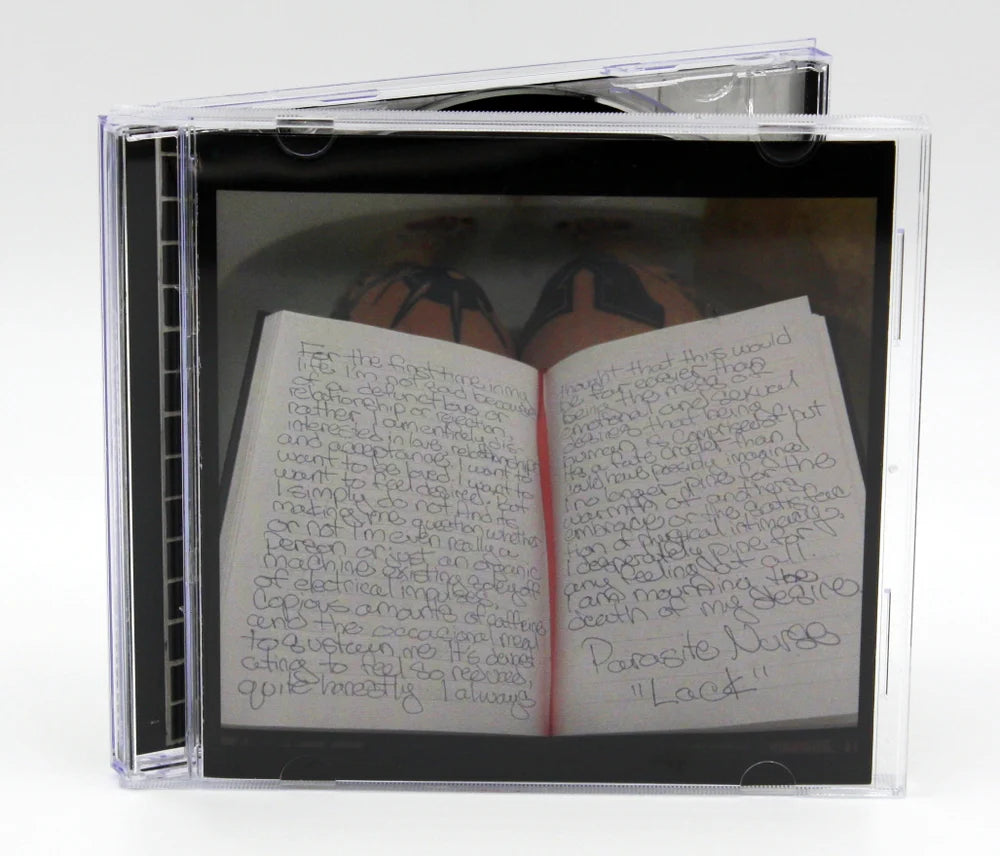 For the first time in my
life I'm not sad because
of a defunct love or
relationship or rejection,
rather I am entirely disin-
interested in love, relationships
and acceptance. I want to
want to be loved, I want to
want to feel desired, but
I simply do not. And it's
making me question whether
or not I'm even really a
person or just an organic
machine existing solely off
of electrical impulses,
copious amounts of caffeine
and the occasional meal
to sustain me. It's devast-
ating to feel so removed,
quite honestly I always
thought that this would
be far easier than
being this mess of
emotional and sexual
desires that being
human is comprised of, but
its a fate crueler than
I could have possibly imagined
I no longer pine for the
warmth of another's
embrace or the satisfac-
tion of physical intimacy
I desperately pine for
any feeling but all
I am mourning the
death of my desires
Parasite Nurse
"Lack"